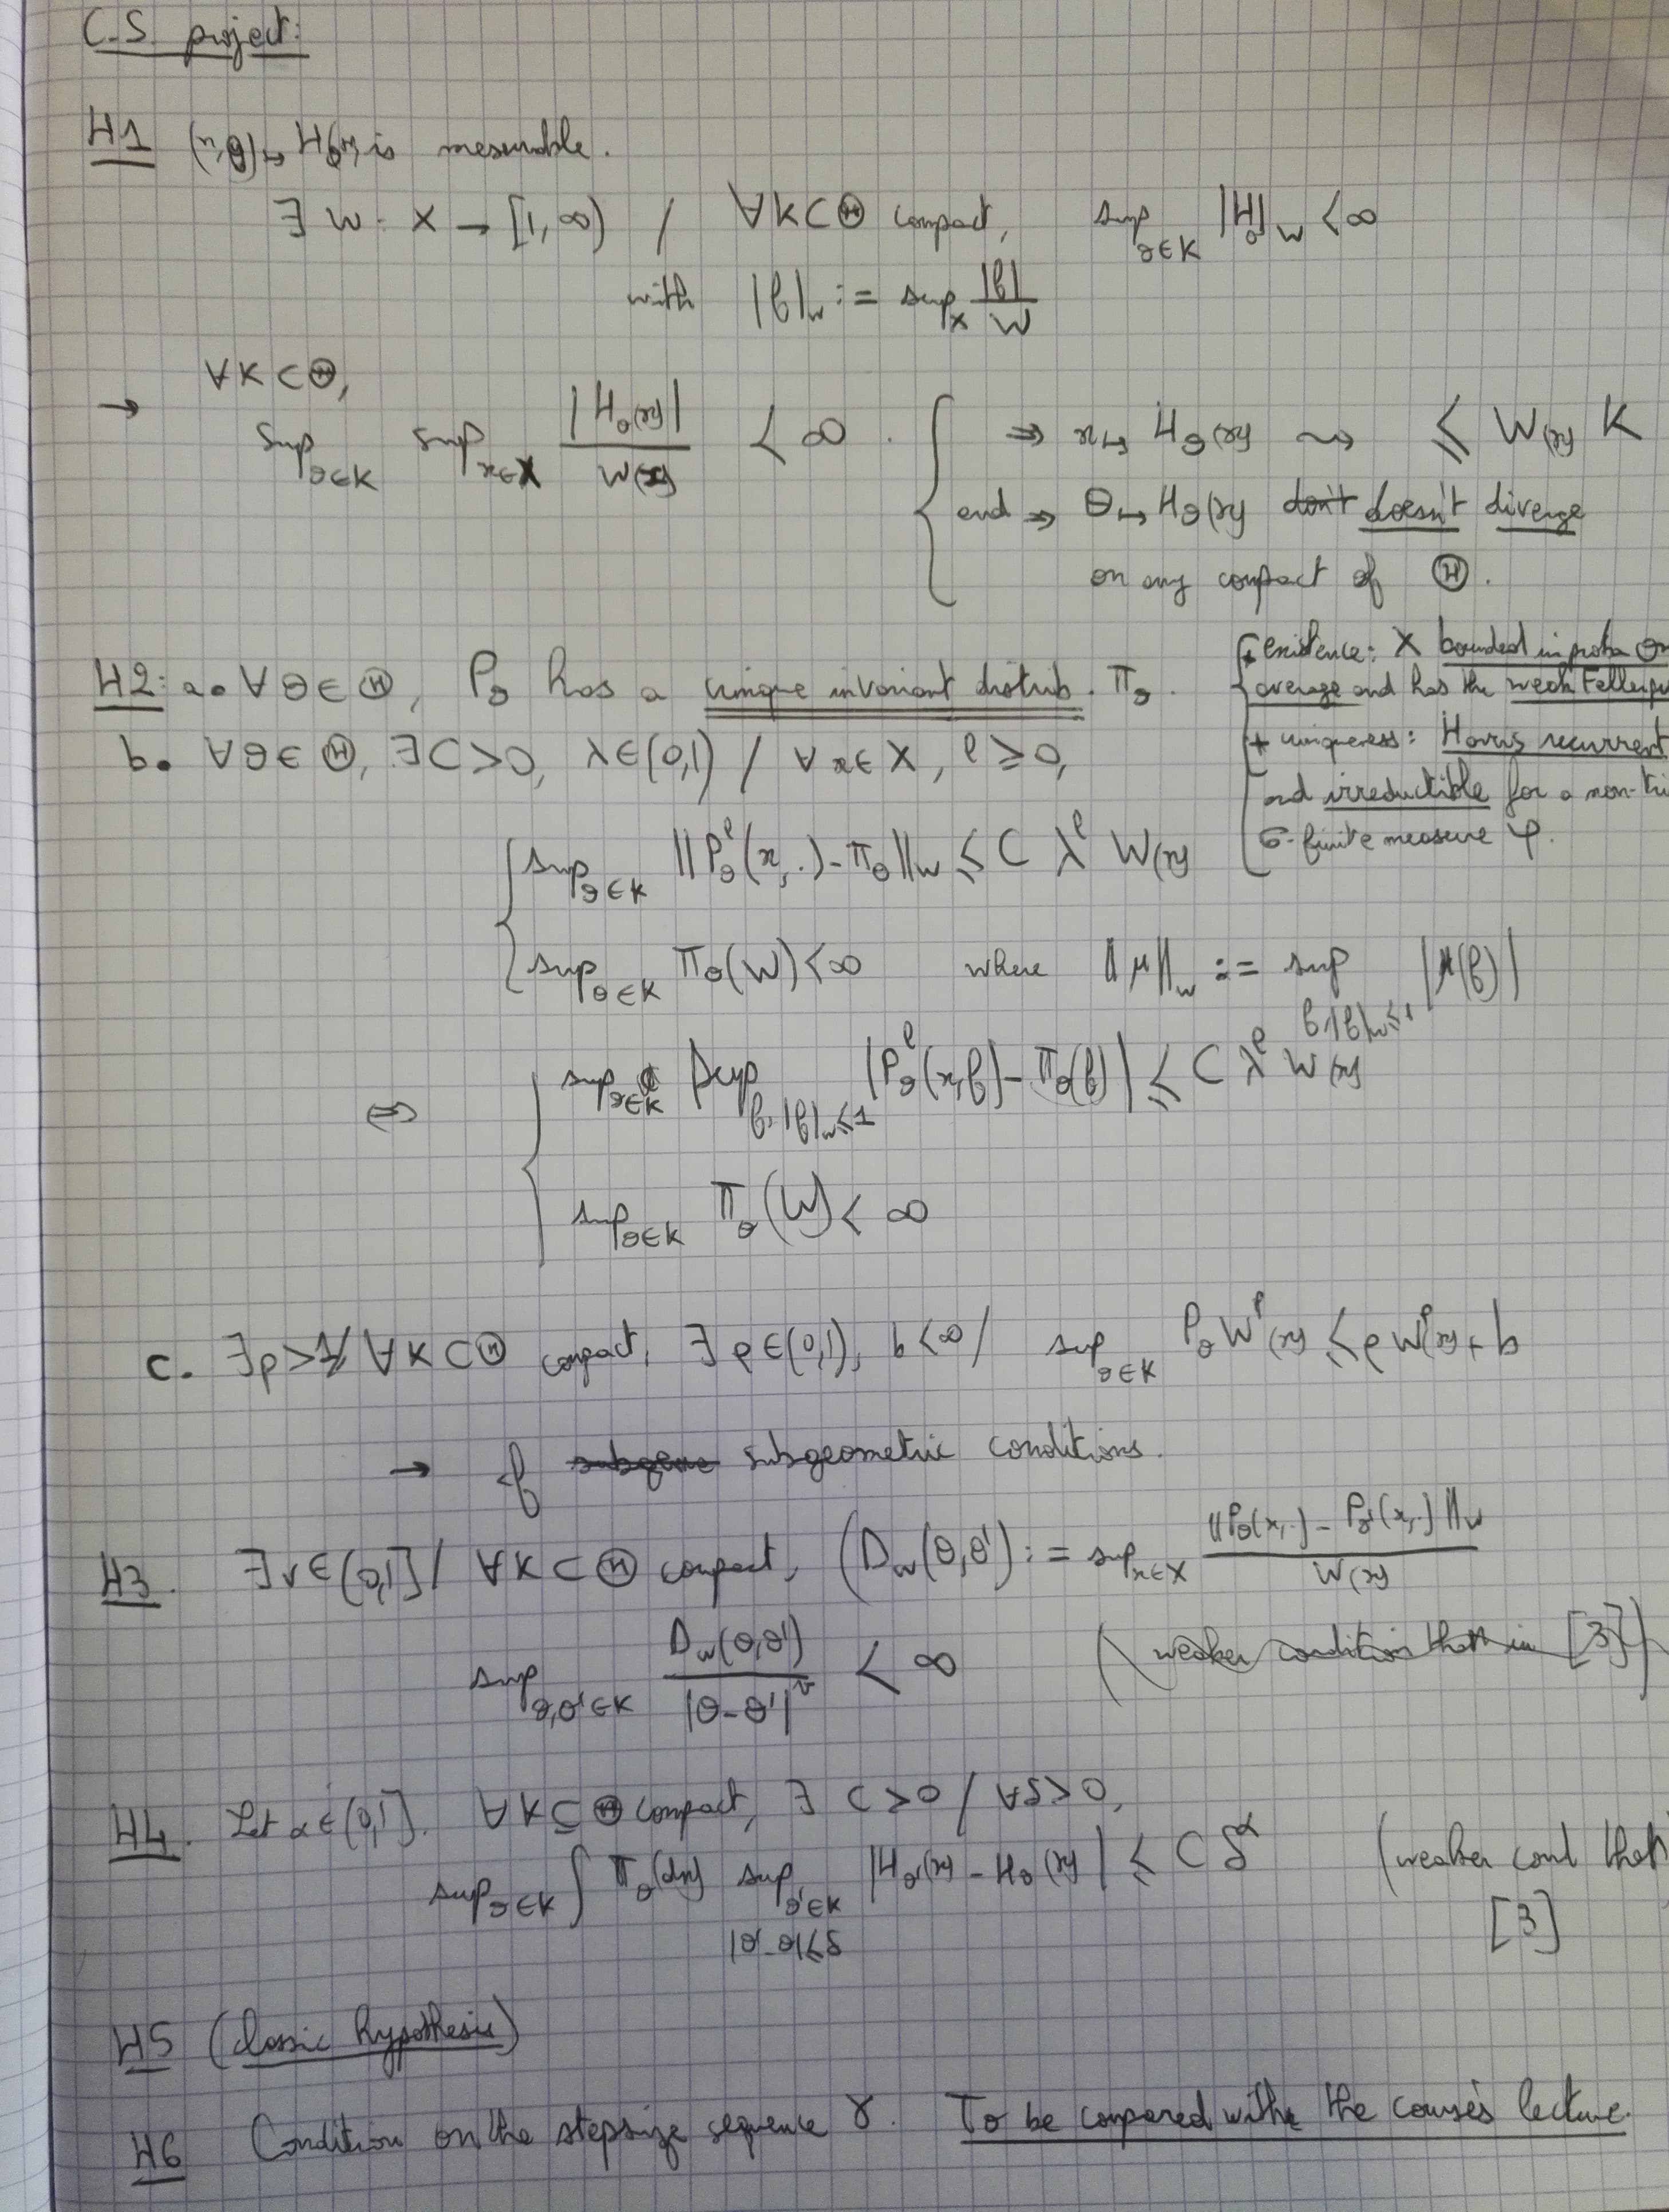 C.S. project:
H1 (x,θ) ↦ H_θ(x) is mesurable.
∃ W : X → [1,∞) / ∀K⊂Θ compact, sup_{θ∈K} |H_θ|_W < ∞
with |f|_W := sup_X |f|/W
→ ∀K⊂Θ,
sup_{θ∈K} sup_{x∈X} |H_θ(x)|/W(x) < ∞. { ⇒ x ↦ H_θ(x) ⇝ ≤ W(x) K
and ⇒ θ ↦ H_θ(x) don't doesn't diverge
on any compact of Θ.
H2: a. ∀θ∈Θ, P_θ has a unique invariant distrib. π_θ.
+ existence: X bounded in proba on
average and has the weak Feller
+ uniqueness: Harris recurrent
and irreductible for a non-
σ-finite measure φ.
b. ∀θ∈Θ, ∃C>0, λ∈(0,1) / ∀x∈X, l≥0,
{ sup_{θ∈K} ||P_θ^l(x,.) - π_θ||_W ≤ C λ^l W(x)
sup_{θ∈K} π_θ(W) < ∞ where ||μ||_W := sup_{f,|f|_W≤1} |μ(f)|
⇔ { sup_{θ∈K} sup_{f,|f|_W≤1} |P_θ^l(x,f) - π_θ(f)| ≤ C λ^l W(x)
sup_{θ∈K} π_θ(W) < ∞
c. ∃p>1/ ∀K⊂Θ compact, ∃ρ∈(0,1), b<∞ / sup_{θ∈K} P_θ W^p(x) ≤ ρ W^p(x) + b
→ subgeometric conditions.
H3. ∃v∈(0,1] / ∀K⊂Θ compact, (D_W(θ,θ') := sup_{x∈X} ||P_θ(x,.) - P_θ'(x,.)||_W / W(x)
sup_{θ,θ'∈K} D_W(θ,θ')/|θ-θ'|^v < ∞ (weaker condition that in [3])
H4. Let α∈(0,1]. ∀K⊆Θ compact, ∃ C>0 / ∀δ>0,
sup_{θ∈K} ∫ π_θ(dx) sup_{θ'∈K |θ'-θ|≤δ} |H_θ'(x) - H_θ(x)| ≤ C δ^α (weaker cond that
[3]
H5 (classic hypothesis)
H6 Condition on the stepsize sequence γ. To be compared with the course's lecture.